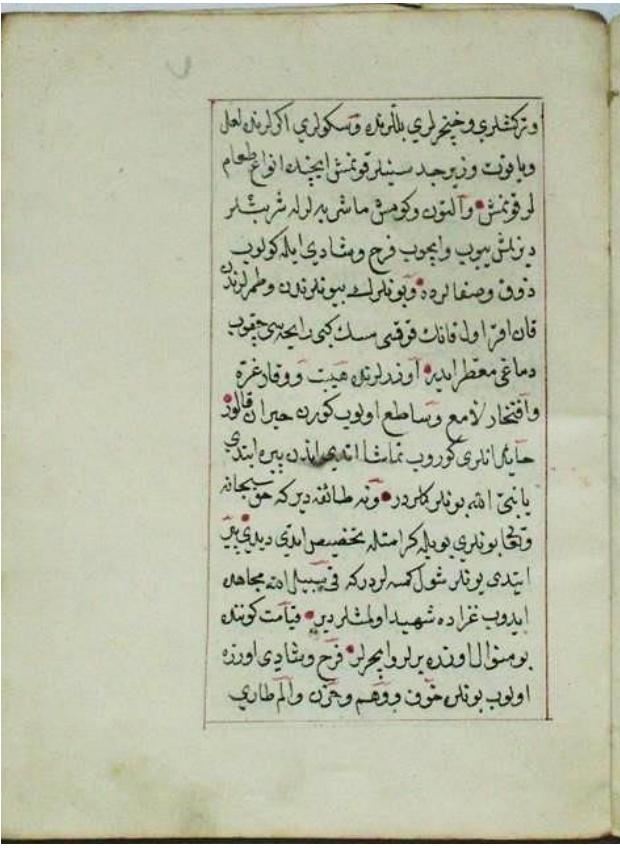 وتركشلري وخنجرلري بللرنده وسكولري اكرلرنده لعل
وياقوت وزبرجد سينيلر قونمش ايچنده انواع طعام
لر قونمش وآلتون وكومش ماشربه لرله شربتلر
ديزلمش ييوب وايچوب فرح وشادي ايله كولوب
ذوق وصفالرده وبونلرك بيونلرندن وطمرلرندن
قان اقر اول قانك قوقسى مسك كبى رايحه سى چقوب
دماغى معطر ايدر اوزرلرنده هيبت ووقار غره
وافتخار لامع وساطع اولوب كورن حيران قالور
انلرى كوروب تماشا ايتدى ايتدى
يا نبىّ الله بونلر كملردر ونه طائفه دير كه حق سبحانه
وتعالى بونلري بويله كرامتله تخصيص ايتدى ديدى
ايتدى بونلر شول كمسه لردركه فى سبيل الله مجاهده
ايدوب غزاده شهيد اولمشلردير قيامت كوننده
بو منوال اوزره يرلر وايچرلر فرح وشادى اوزره
اولوب بونلره خوف ووهم وحزن والم طاري